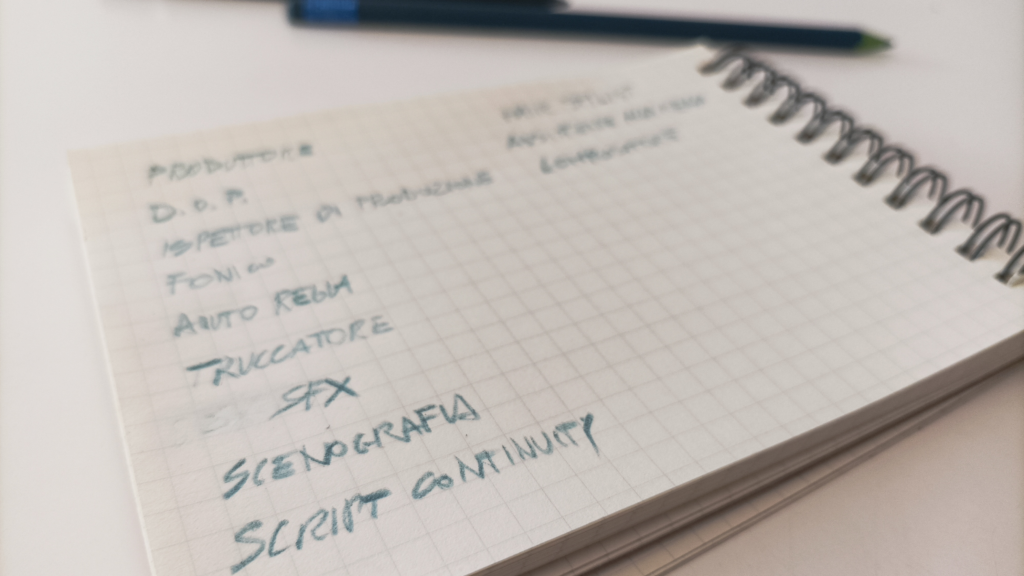 PRODUTTORE
D.O.P.
ISPETTORE DI PRODUZIONE
FONICO
AIUTO REGIA
TRUCCATORE
SFX
SCENOGRAFIA
SCRIPT CONTINUITY
HAIR STYLIST